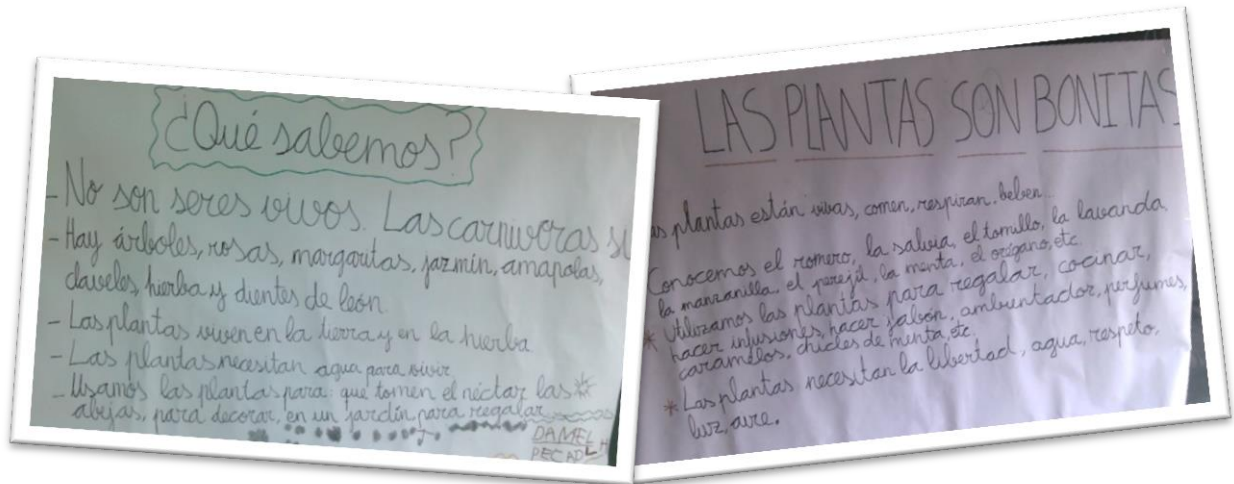 ¿Qué sabemos?
- No son seres vivos. Las carnívoras sí
- Hay árboles, rosas, margaritas, jazmín, amapolas,
claveles, hierba y dientes de león.
- Las plantas viven en la tierra y en la hierba
- Las plantas necesitan agua para vivir
- Usamos las plantas para: que tomen el néctar las
abejas, para decorar, en un jardín, para regalar
LAS PLANTAS SON BONITAS
as plantas están vivas, comen, respiran, beben...
Conocemos el romero, la salvia, el tomillo, la lavanda,
la manzanilla, el perejil, la menta, el orégano, etc.
* Utilizamos las plantas para regalar, cocinar,
hacer infusiones, hacer jabón, ambientador, perfumes,
caramelos, chicles de menta, etc.
* Las plantas necesitan la libertad, agua, respeto,
luz, aire.